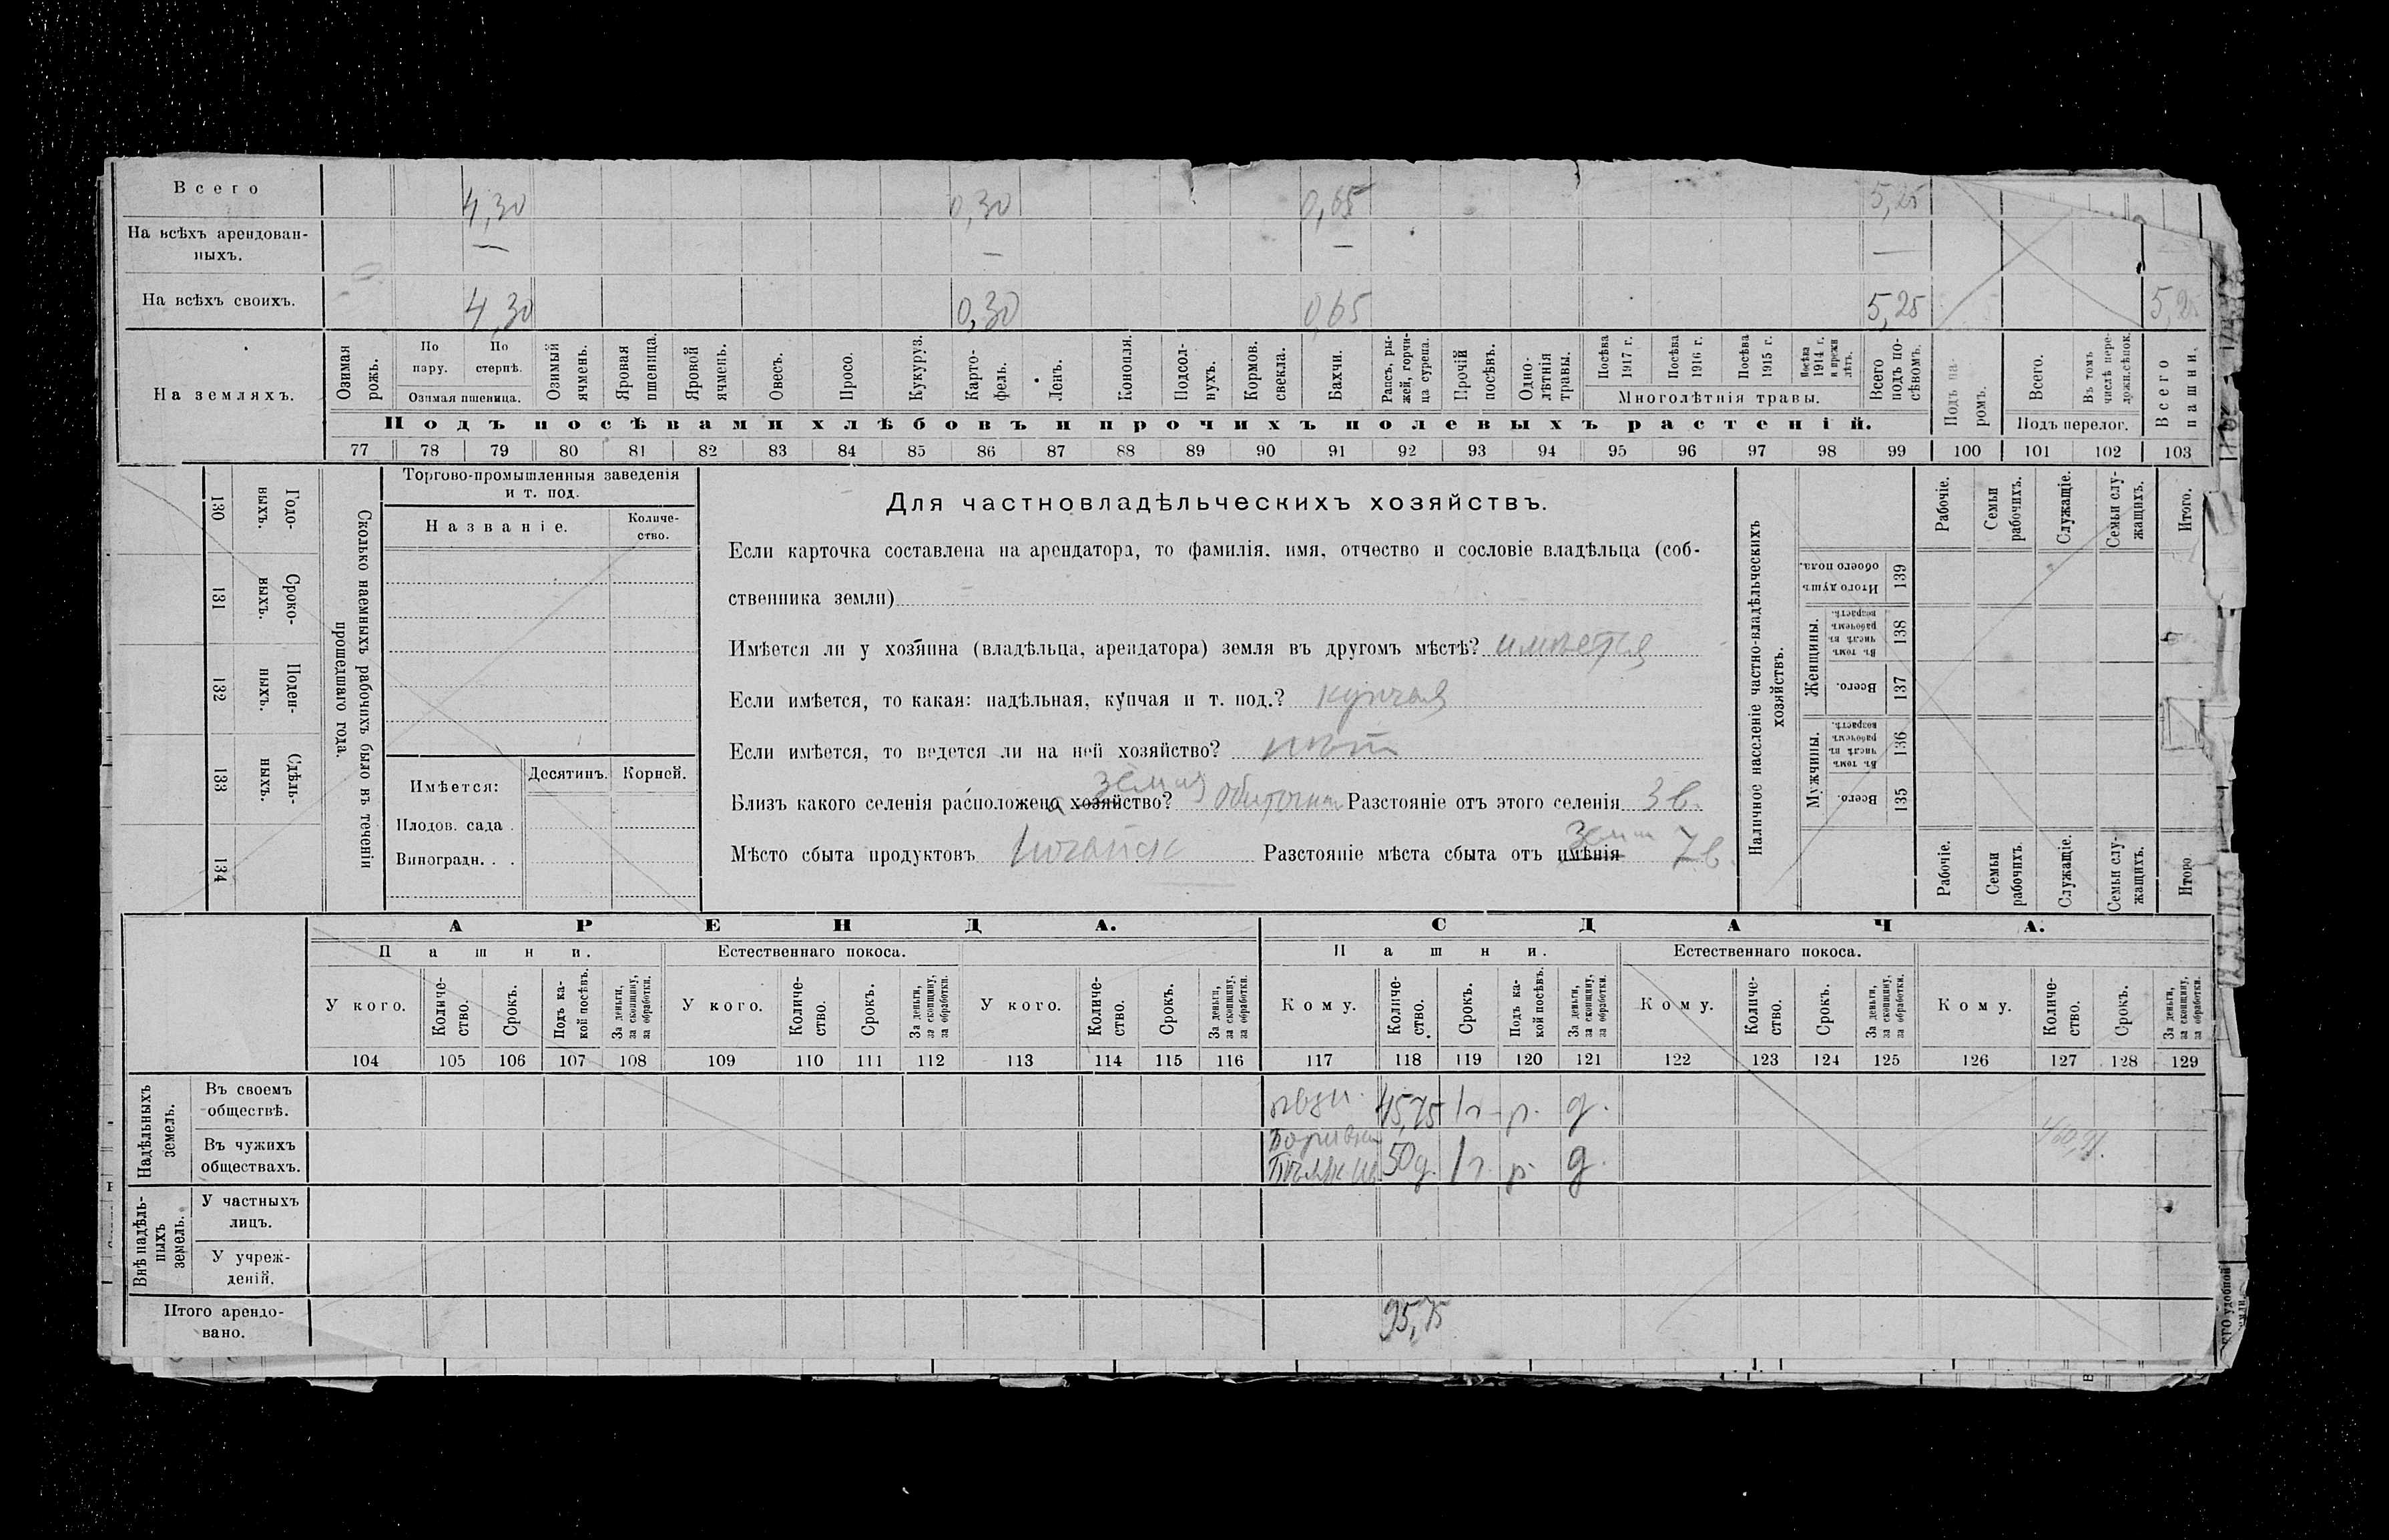 Всего 4,30 0,30 0,65 5,25
На всѣхъ арендован-
ныхъ. — — — —
На всѣхъ своихъ. 4,30 0,30 0,65 5,25 5,25
На земляхъ.
Озимая рожь.
По пару.
По стерпѣ.
Озимая пшеница.
Озимый ячмень.
Яровая пшеница.
Яровой ячмень.
Овесъ.
Просо.
Кукуруз.
Карто-
фель.
Ленъ.
Конопля.
Подсол-
нухъ.
Кормов. свекла.
Бахчи.
Рапсъ, ры-
жей, горчи-
ца сурепа.
Прочій посѣвъ.
Одно-
лѣтнія травы.
Посѣва 1917 г.
Посѣва 1916 г.
Посѣва 1915 г.
Посѣва 1914 г. и прежн лѣтъ.
Многолѣтнія травы.
Всего подъ по-
сѣвомъ.
Подъ посѣвами хлѣбовъ и прочихъ полевыхъ растеній.
Подъ па-
ромъ.
Всего.
Въ томъ числѣ пере-
Подъ перелог.
Всего пашни.
77 78 79 80 81 82 83 84 85 86 87 88 89 90 91 92 93 94 95 96 97 98 99 100 101 102 103
130 Годо-
выхъ.
131 Сроко-
выхъ.
132 Поден-
ныхъ.
133 Сдѣль-
ныхъ.
134
Сколько наемныхъ рабочихъ было въ теченіи
прошедшаго года.
Торгово-промышленныя заведенія
и т. под.
Названіе.
Количе-
ство.
Имѣется: Десятинъ. Корней.
Плодов. сада .
Виноградн. . .
Для частновладѣльческихъ хозяйствъ.
Если карточка составлена на арендатора, то фамилія, имя, отчество и сословіе владѣльца (соб-
ственника земли)
Имѣется ли у хозяина (владѣльца, арендатора) земля въ другомъ мѣстѣ? имѣется
Если имѣется, то какая: надѣльная, купчая и т. под.? купчая
Если имѣется, то ведется ли на ней хозяйство? нѣт
земля
Близъ какого селенія расположено хозяйство? Разстояніе отъ этого селенія 3 в.
земли
Мѣсто сбыта продуктовъ Ногайск Разстояніе мѣста сбыта отъ имѣнія 7 в.
Наличное населеніе частно-владѣльческихъ
хозяйствъ.
Рабочіе.
Семьи рабочихъ.
Служащіе.
Семьи слу-
жащихъ.
Итого.
Итого душъ обоего пола. 139
Женщины.
Въ томъ числѣ въ рабочемъ возрастѣ. 138
Всего. 137
Мужчины.
Въ томъ числѣ въ рабочемъ возрастѣ. 136
Всего. 135
Рабочіе.
Семьи рабочихъ.
Служащіе.
Семьи слу-
жащихъ.
Итого
АРЕНДА. СДАЧА.
Пашни. Естественнаго покоса. Пашни. Естественнаго покоса.
У кого.
Количе-
ство.
Срокъ.
Подъ ка-
кой посѣвъ.
За деньги, за скопщину, за обработки.
У кого.
Количе-
ство.
Срокъ.
За деньги, за скопщину, за обработки.
У кого.
Количе-
ство.
Срокъ.
За деньги, за скопщину, за обработки.
Кому.
Количе-
ство.
Срокъ.
Подъ ка-
кой посѣвъ.
За деньги, за скопщину, за обработки.
Кому.
Количе-
ство.
Срокъ.
За деньги, за скопщину, за обработки.
Кому.
Количе-
ство.
Срокъ.
За деньги, за скопщину, за обработки.
104 105 106 107 108 109 110 111 112 113 114 115 116 117 118 119 120 121 122 123 124 125 126 127 128 129
Надѣльныхъ земель.
Въ своемъ
обществѣ. 45,75 1 г. р. д.
Въ чужихъ
обществахъ. 50 д. 1 г. р. д.
Внѣ надѣль-
ныхъ земель.
У частныхъ
лицъ.
У учреж-
деній.
Итого арендо-
вано. 95,75